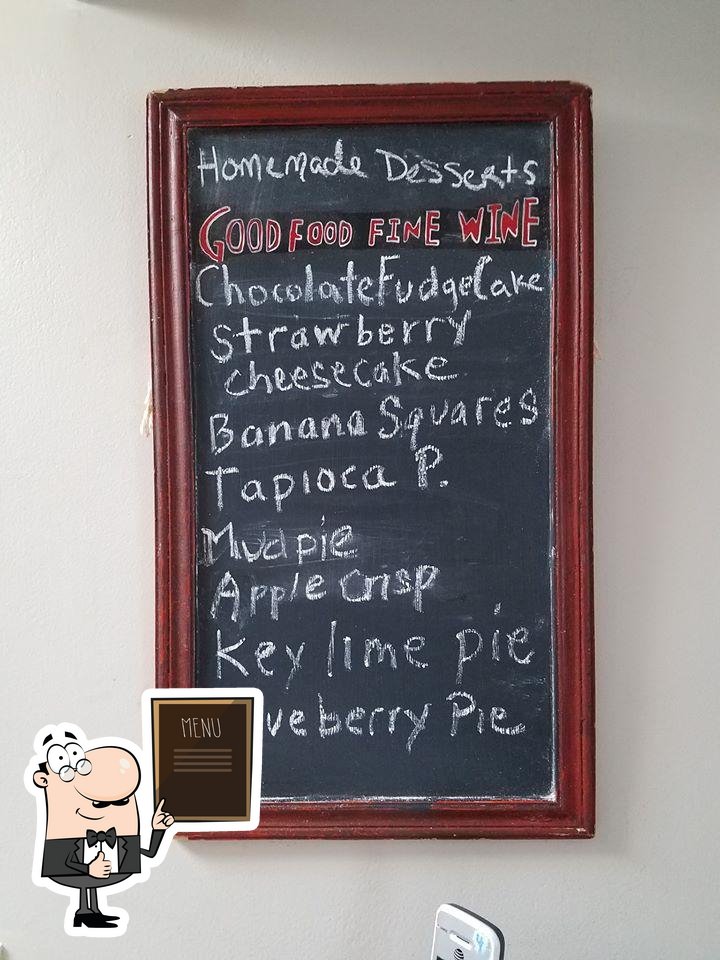 Homemade Desserts
GOOD FOOD FINE WINE
Chocolate Fudge Cake
Strawberry
cheesecake
Banana Squares
Tapioca P.
Mud pie
Apple Crisp
Key lime pie
ueberry Pie
MENU